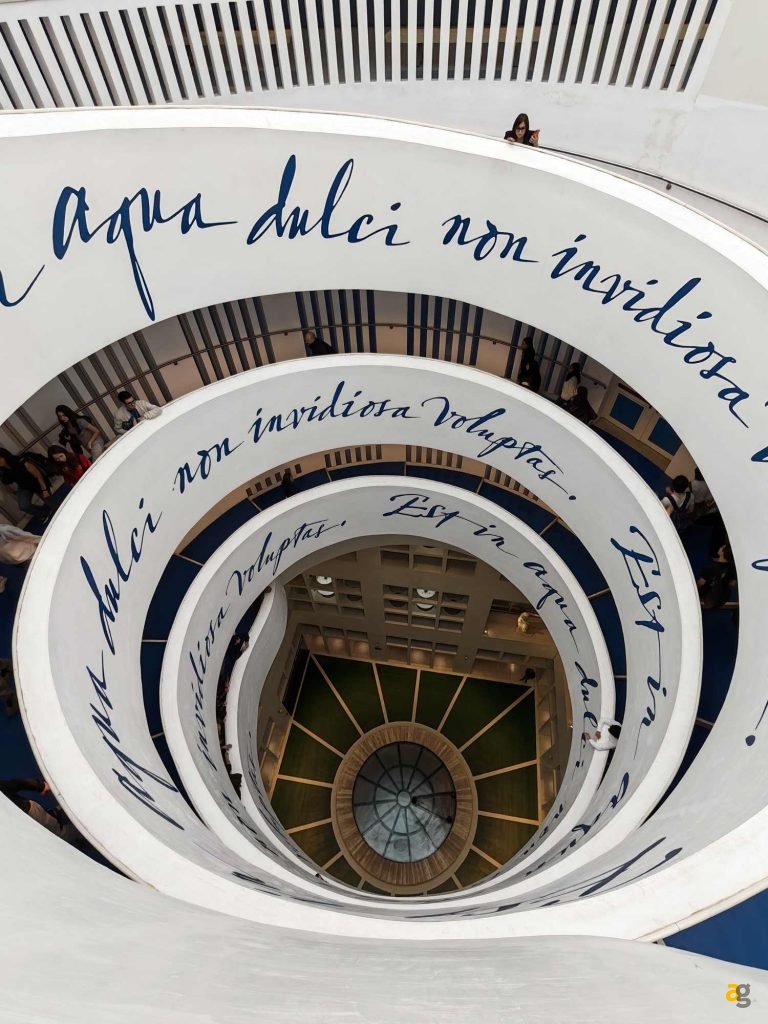 agua dulci non invidiosa
agua dulci non invidiosa voluptas. Est in
invidiosa voluptas. Est in aqua dulci
ag